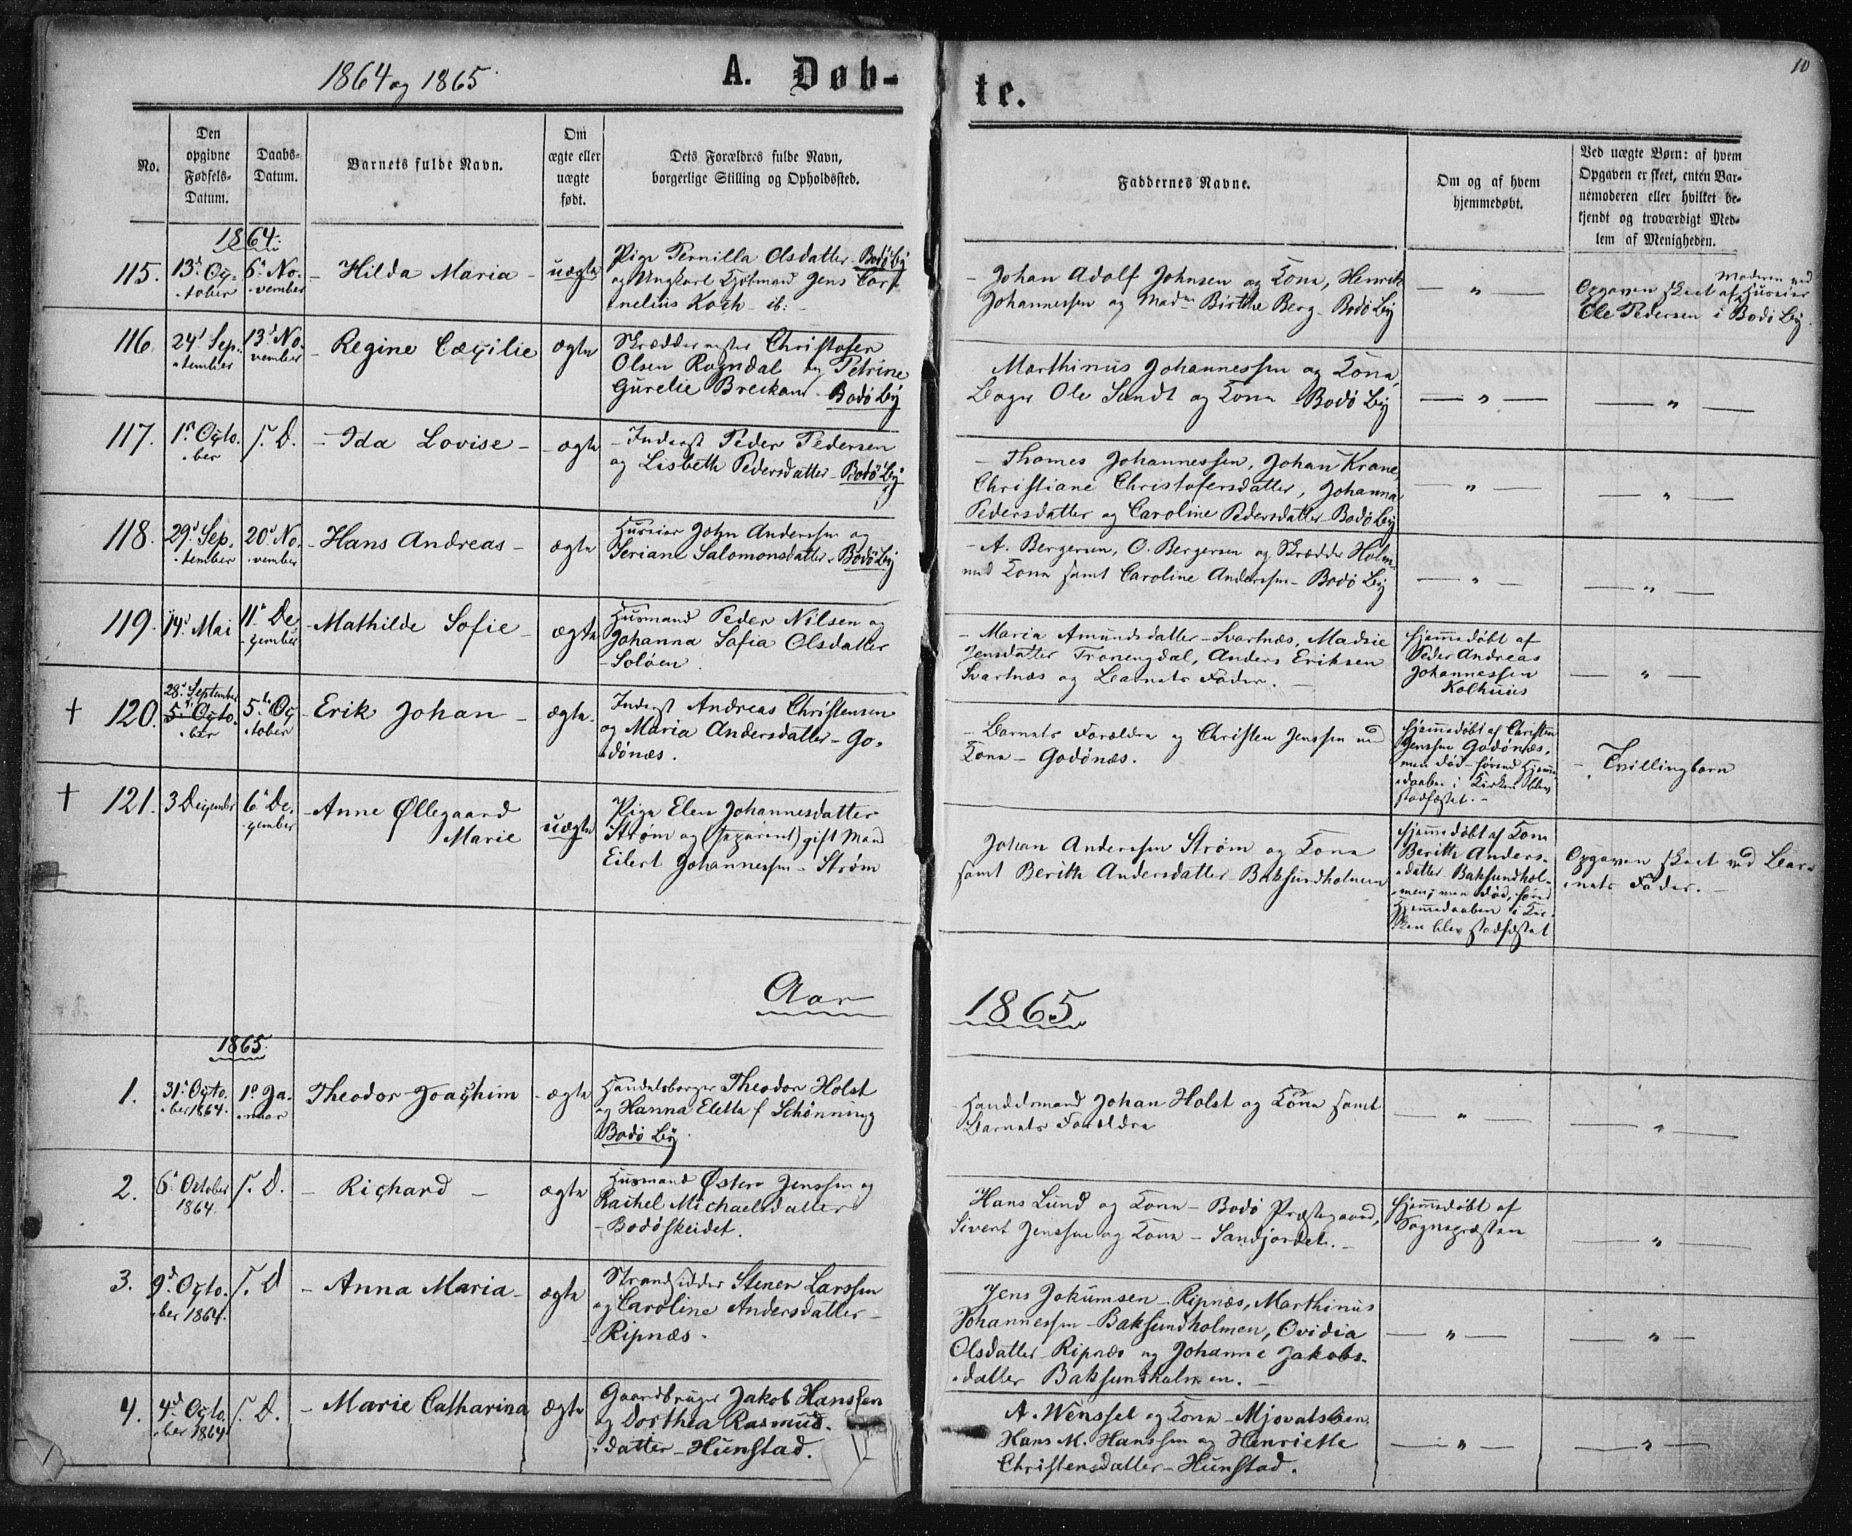 1864 og 1865
A. Døb-
te.
10
No.
Den
opgivne
Fødsels-
Datum.
Daabs-
Datum.
Barnets fulde Navn.
Om
ægte eller
uægte
født.
Dets Forældres fulde Navn,
borgerlige Stilling og Opholdssted.
Faddernes Navne.
Om og af hvem
hjemmedøbt.
Ved uægte Børn: af hvem
Opgaven er skeet, enten Bar-
nemoderen eller hvilket be-
kjendt og troværdigt Med-
lem af Menigheden.
1864.
115.
13d Oc-
tober
6d No-
vember
Hilda Maria
uægte
Pige Pernilla Olsdatter Bodø By
og Ungkarl Jens Cor-
nelius Koch ib:
Johan Adolf Johnsen og Kone, Henrik
Johannessen og Madm Birthe Berg - Bodø By
- " -
Opgaven skeet af Moderen ved Huseier
Ole Pedersen i Bodø By.
116.
24d Sep-
tember
13d No-
vember
Regine Cæcilie
ægte
Skræddermester Christofer
Olsen Rogndal og Petrine
Gurelie Breckan - Bodø By
Marthinus Johannessen og Kone,
Bager Ole Sundt og Kone - Bodø By
- " -
- " -
117.
1st Octo-
ber
s. D.
Ida Lovise
ægte
Inderst Peder Pedersen
og Lisbeth Pedersdatter - Bodø By
Thomes Johannessen, Johan Krane,
Christiane Christofersdatter, Johanna
Pedersdatter og Caroline Pedersdatter - Bodø By
- " -
- " -
118.
29d Sep-
tember
20d No-
vember
Hans Andreas
ægte
Huseier John Anderssen og
Seriane Salomonsdatter - Bodø By
A. Bergersen, O. Bergersen og Skrædder Holm
med Kone samt Caroline Anderssen - Bodø By
- " -
- " -
119.
14d Mai
11d De-
cember
Mathilde Sofie
ægte
Husmand Peder Nilsen og
Johanna Sofia Olsdatter
- Soløen
Maria Amundsdatter - Svartnæs, Madsie
Jensdatter Tronengdal, Anders Eriksen
Svartnæs og Barnets Fader.
Hjemmedøbt af
Peder Andreas
Johannessen
Kolhuus
- " -
† 120.
28d September
5te Octo-
ber
5te Oc-
tober
Erik Johan
ægte
Inderst Andreas Christensen
og Maria Andersdatter - Go-
dønæs.
Barnets Forældre og Christen Jenssen med
Kone - Godønæs.
Hjemmedøbt af Christen
Jenssen Godønæs,
men død førend Hjemme-
daaben i Kirken blev
stadfæstet. -
- Tvillingbarn
† 121.
3 December
6d De-
cember
Anne Øllegaard
Marie
uægte
Pige Elen Johannesdatter
Strøm og (separeret) gift Mand
Eilert Johannessen - Strøm
Johan Anderssen Strøm og Kone
samt Berith Andersdatter - Baksundholmen
Hjemmedøbt af Kone
Berith Anders-
datter Baksundhol-
men, men død, førend
Hjemmedaaben i Kir-
ken blev stadfæstet
Opgaven skeet ved Bar-
nets Fader. -
Aar
1865
1865
1.
31d Octo-
ber 1864.
1st Ja-
nuar
Theodor Joachim
ægte
Handelsborger Theodor Holst
og Hanna Eletta f Schønning
Bodø By.
Handelsmand Johan Holst og Kone samt
Barnets Forældre
- " -
- " -
2.
6d October
1864.
s. D.
Richard
ægte
Husmand Østen Jenssen og
Rachel Michaelsdatter
- Bodøskeidet.
Hans Lund og Kone - Bodø Præstegaard,
Sivert Jenssen og Kone - Sandjordet. -
Hjemmedøbt af
Sognepræsten
- " -
3.
9d Octo-
ber 1864.
s. D
Anna Maria
ægte
Strandsidder Stener Larssen
og Caroline Andersdatter -
Ripnæs.
Jens Jokumsen - Ripnæs, Marthinus
Johannessen - Baksundholmen, Ovidia
Olsdatter Ripnæs og Johanne Jakobs-
datter Baksundholmen. -
- " -
- " -
4.
4d Octo-
ber 1864
s. D.
Marie Catharina
ægte
Gaardbruger Jakob Hanssen
og Dorthea Rasmus-
datter - Hunstad.
A. Wenssel og Kone - Mjovatslien
Hans M. Hanssen og Henriette
Christensdatter - Hunstad.
- " -
- " -